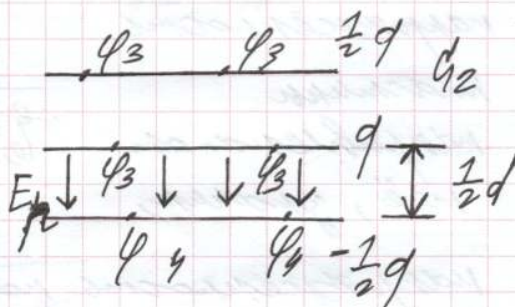 φ₃ φ₃ ½q
q₂
q
φ₃ φ₃ ½d
E
φ₄ φ₄ -½q